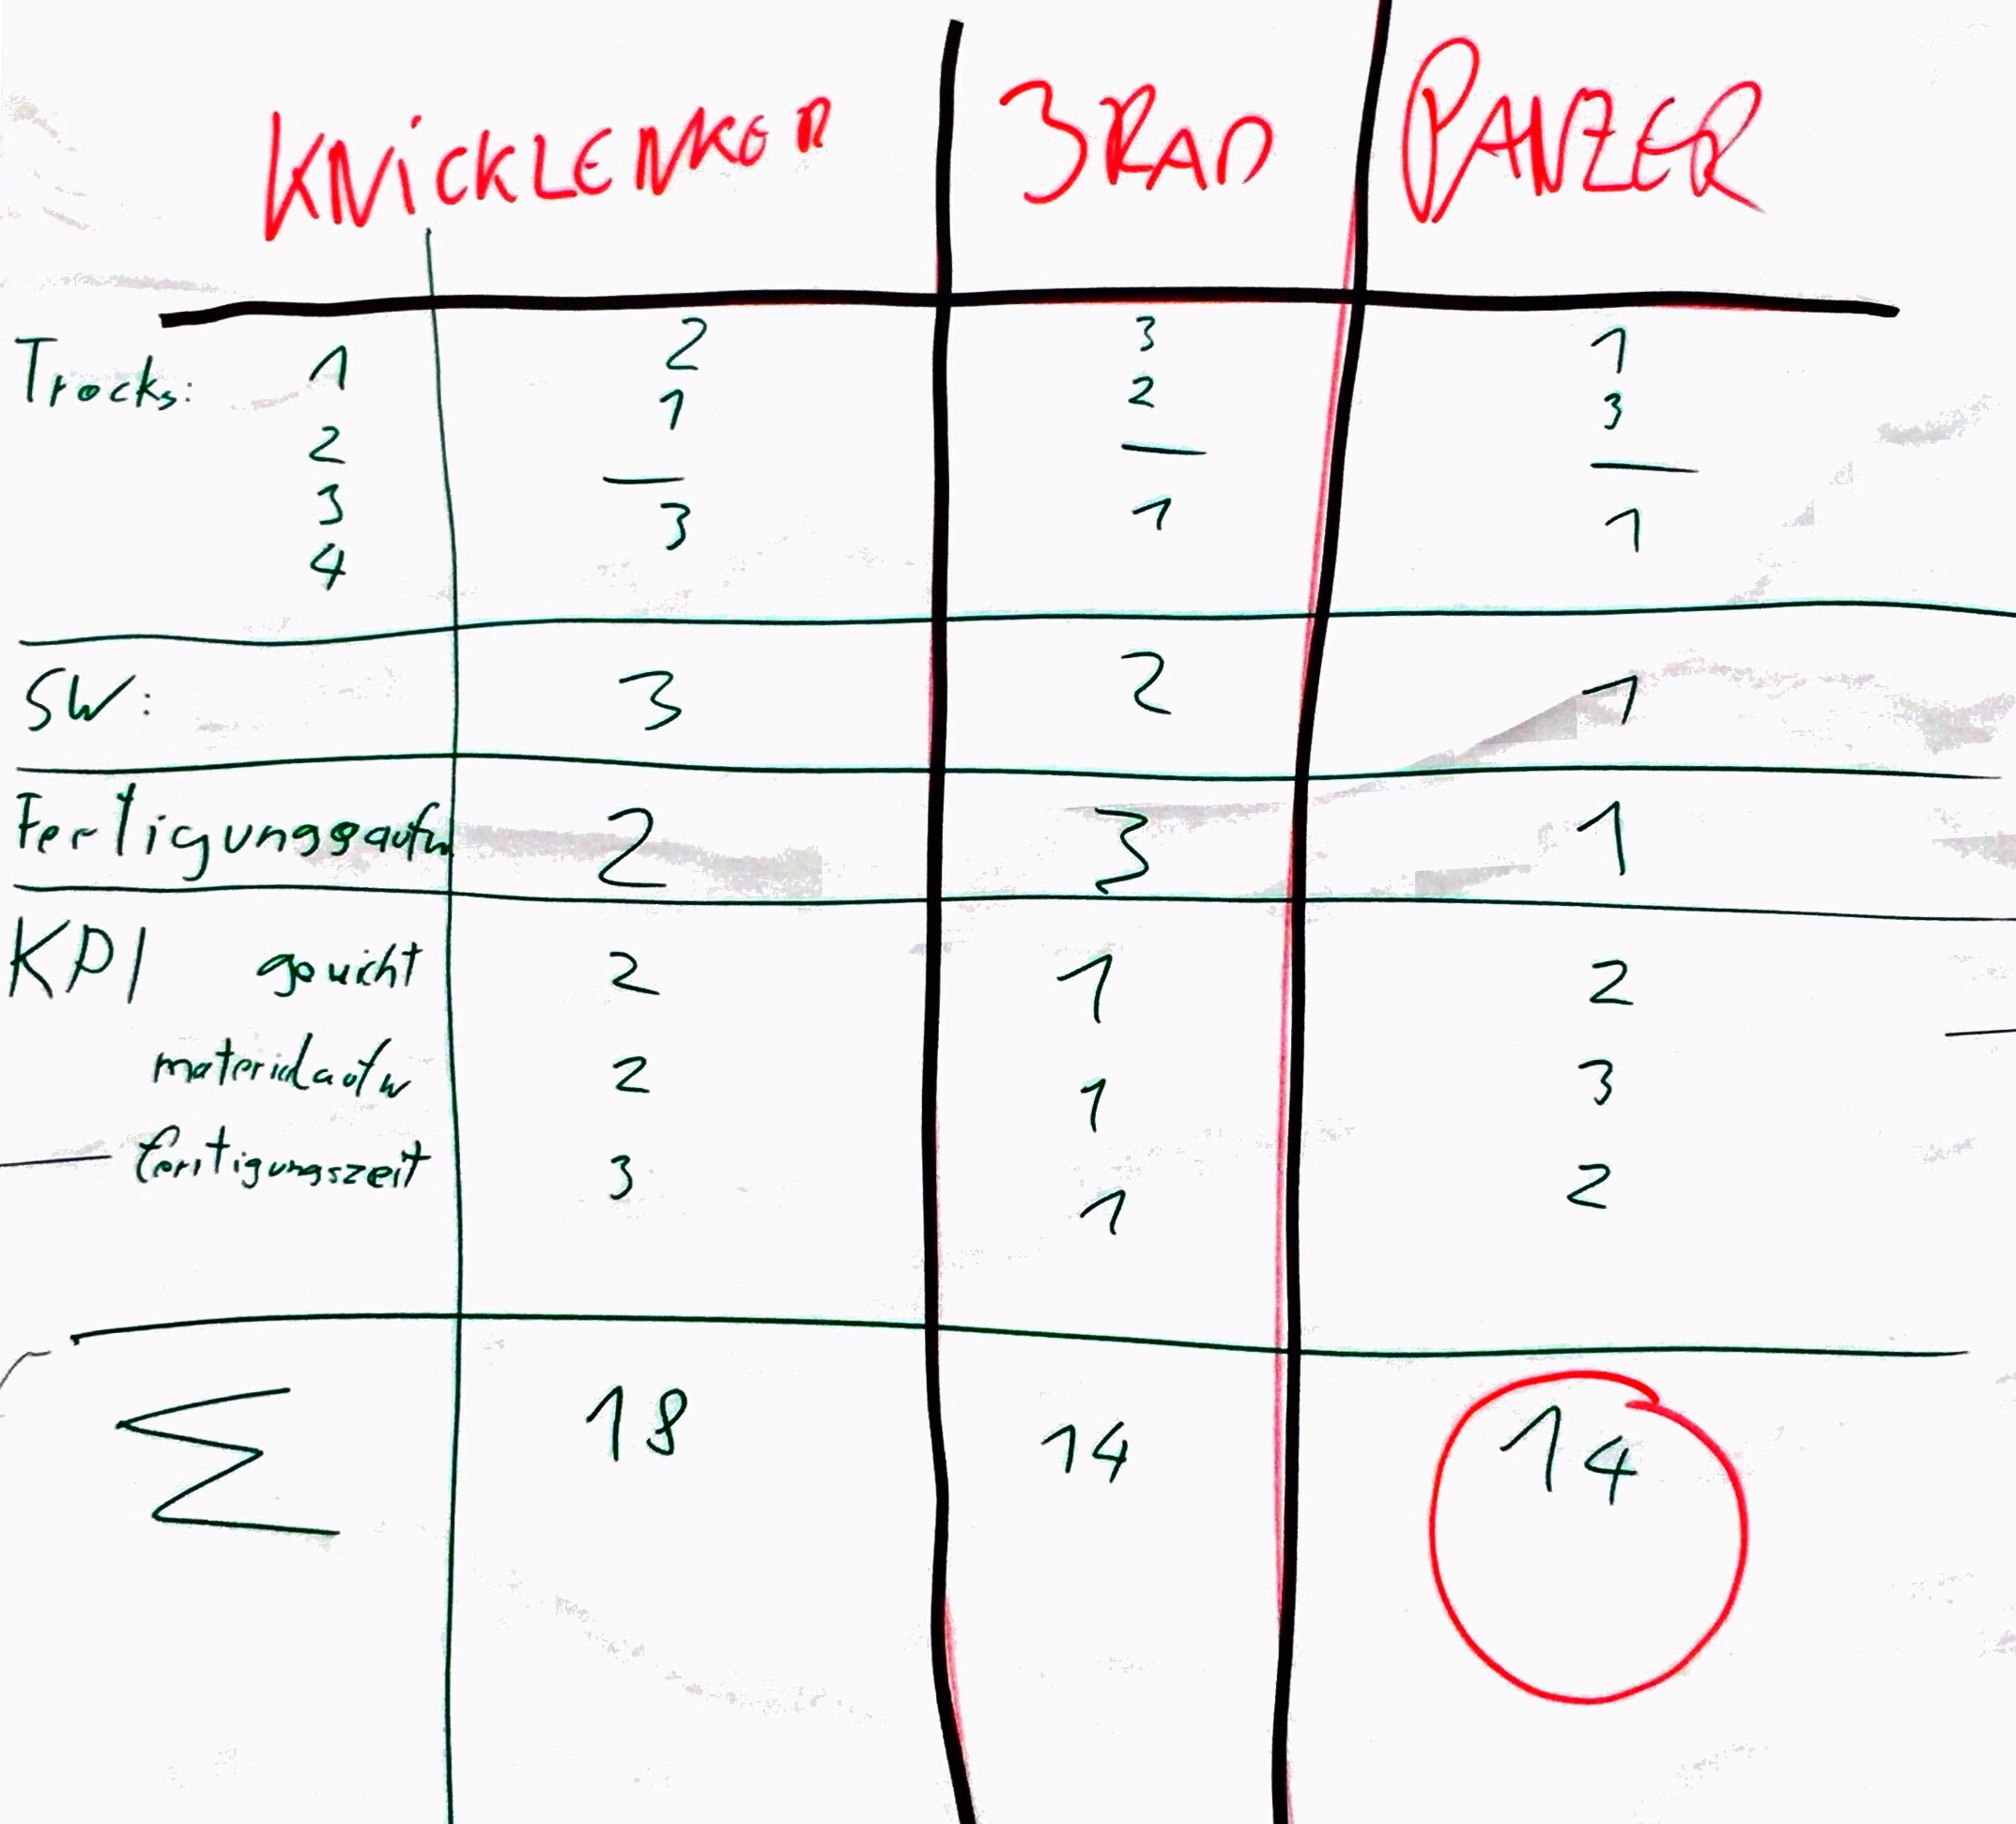 KNiCKLENKER 3RAD PANZER
Tracks: 1 2 3 1
2 1 2 3
3 — — —
4 3 1 1
SW: 3 2 1
Fertigungsaufw 2 3 1
KPI gewicht 2 1 2
materialaufw 2 1 3
fertigungszeit 3 1 2
Σ 18 14 14